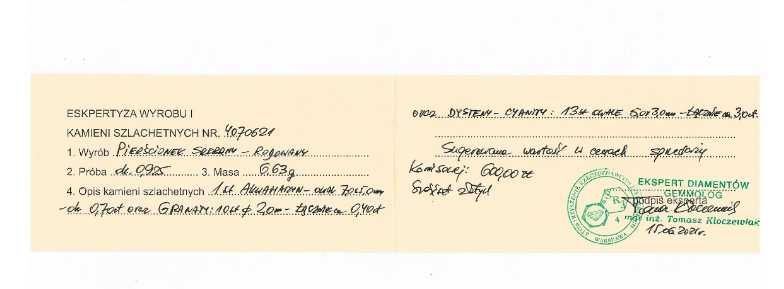 ESKPERTYZA WYROBU I
KAMIENI SZLACHETNYCH NR. 4070621
1. Wyrób PIERŚCIONEK SREBRNY - RODOWANY
2. Próba ok. 0,925 3. Masa 6,63g
4. Opis kamieni szlachetnych 1 szt AKWAMARYN - owal 7,0x5,0mm
- ok. 0,70ct oraz GRANATY: 10szt ϕ 2,0mm - ŁĄCZNIE ok. 0,40ct
oraz DYSTENY - CYANITY: 13szt owale 5,0x3,0mm - ŁĄCZNIE ok. 3,0ct.
Sugerowana wartość w cenach sprzedaży
Komisowej: 600,00 zł
Sześćset złotych
EKSPERT DIAMENTÓW
GEMMOLOG
podpis eksperta
mgr inż. Tomasz Kłoczewiak
15.06.2021r.
WARSZAWA